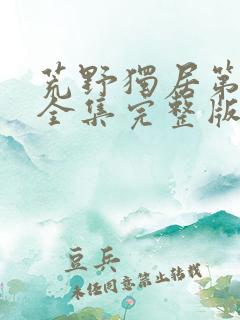 荒野獨居第
全集完整版
豆兵
未经同意禁止转载